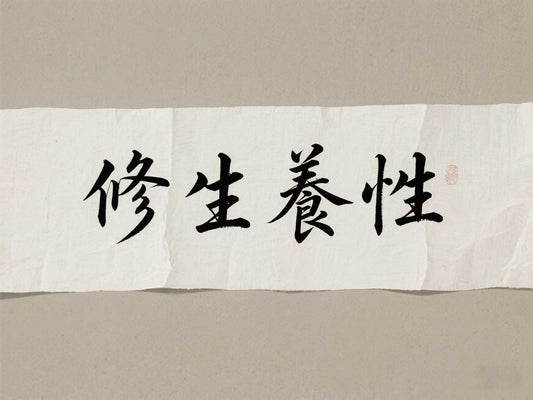 修生養性